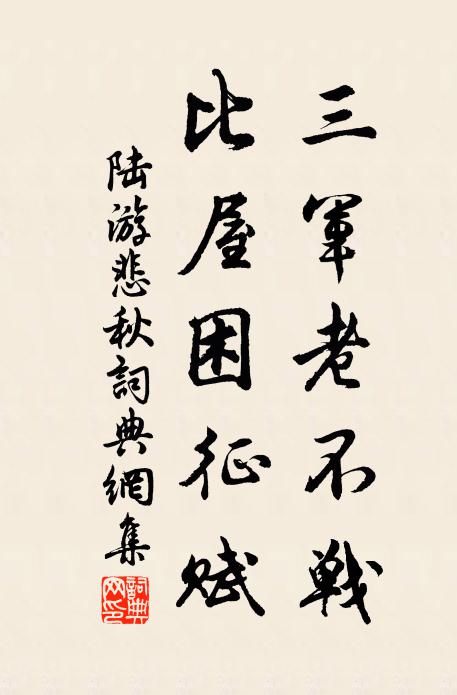 三軍老不戰
比屋困征賦
陸游悲秋詞典網集
詞典网印